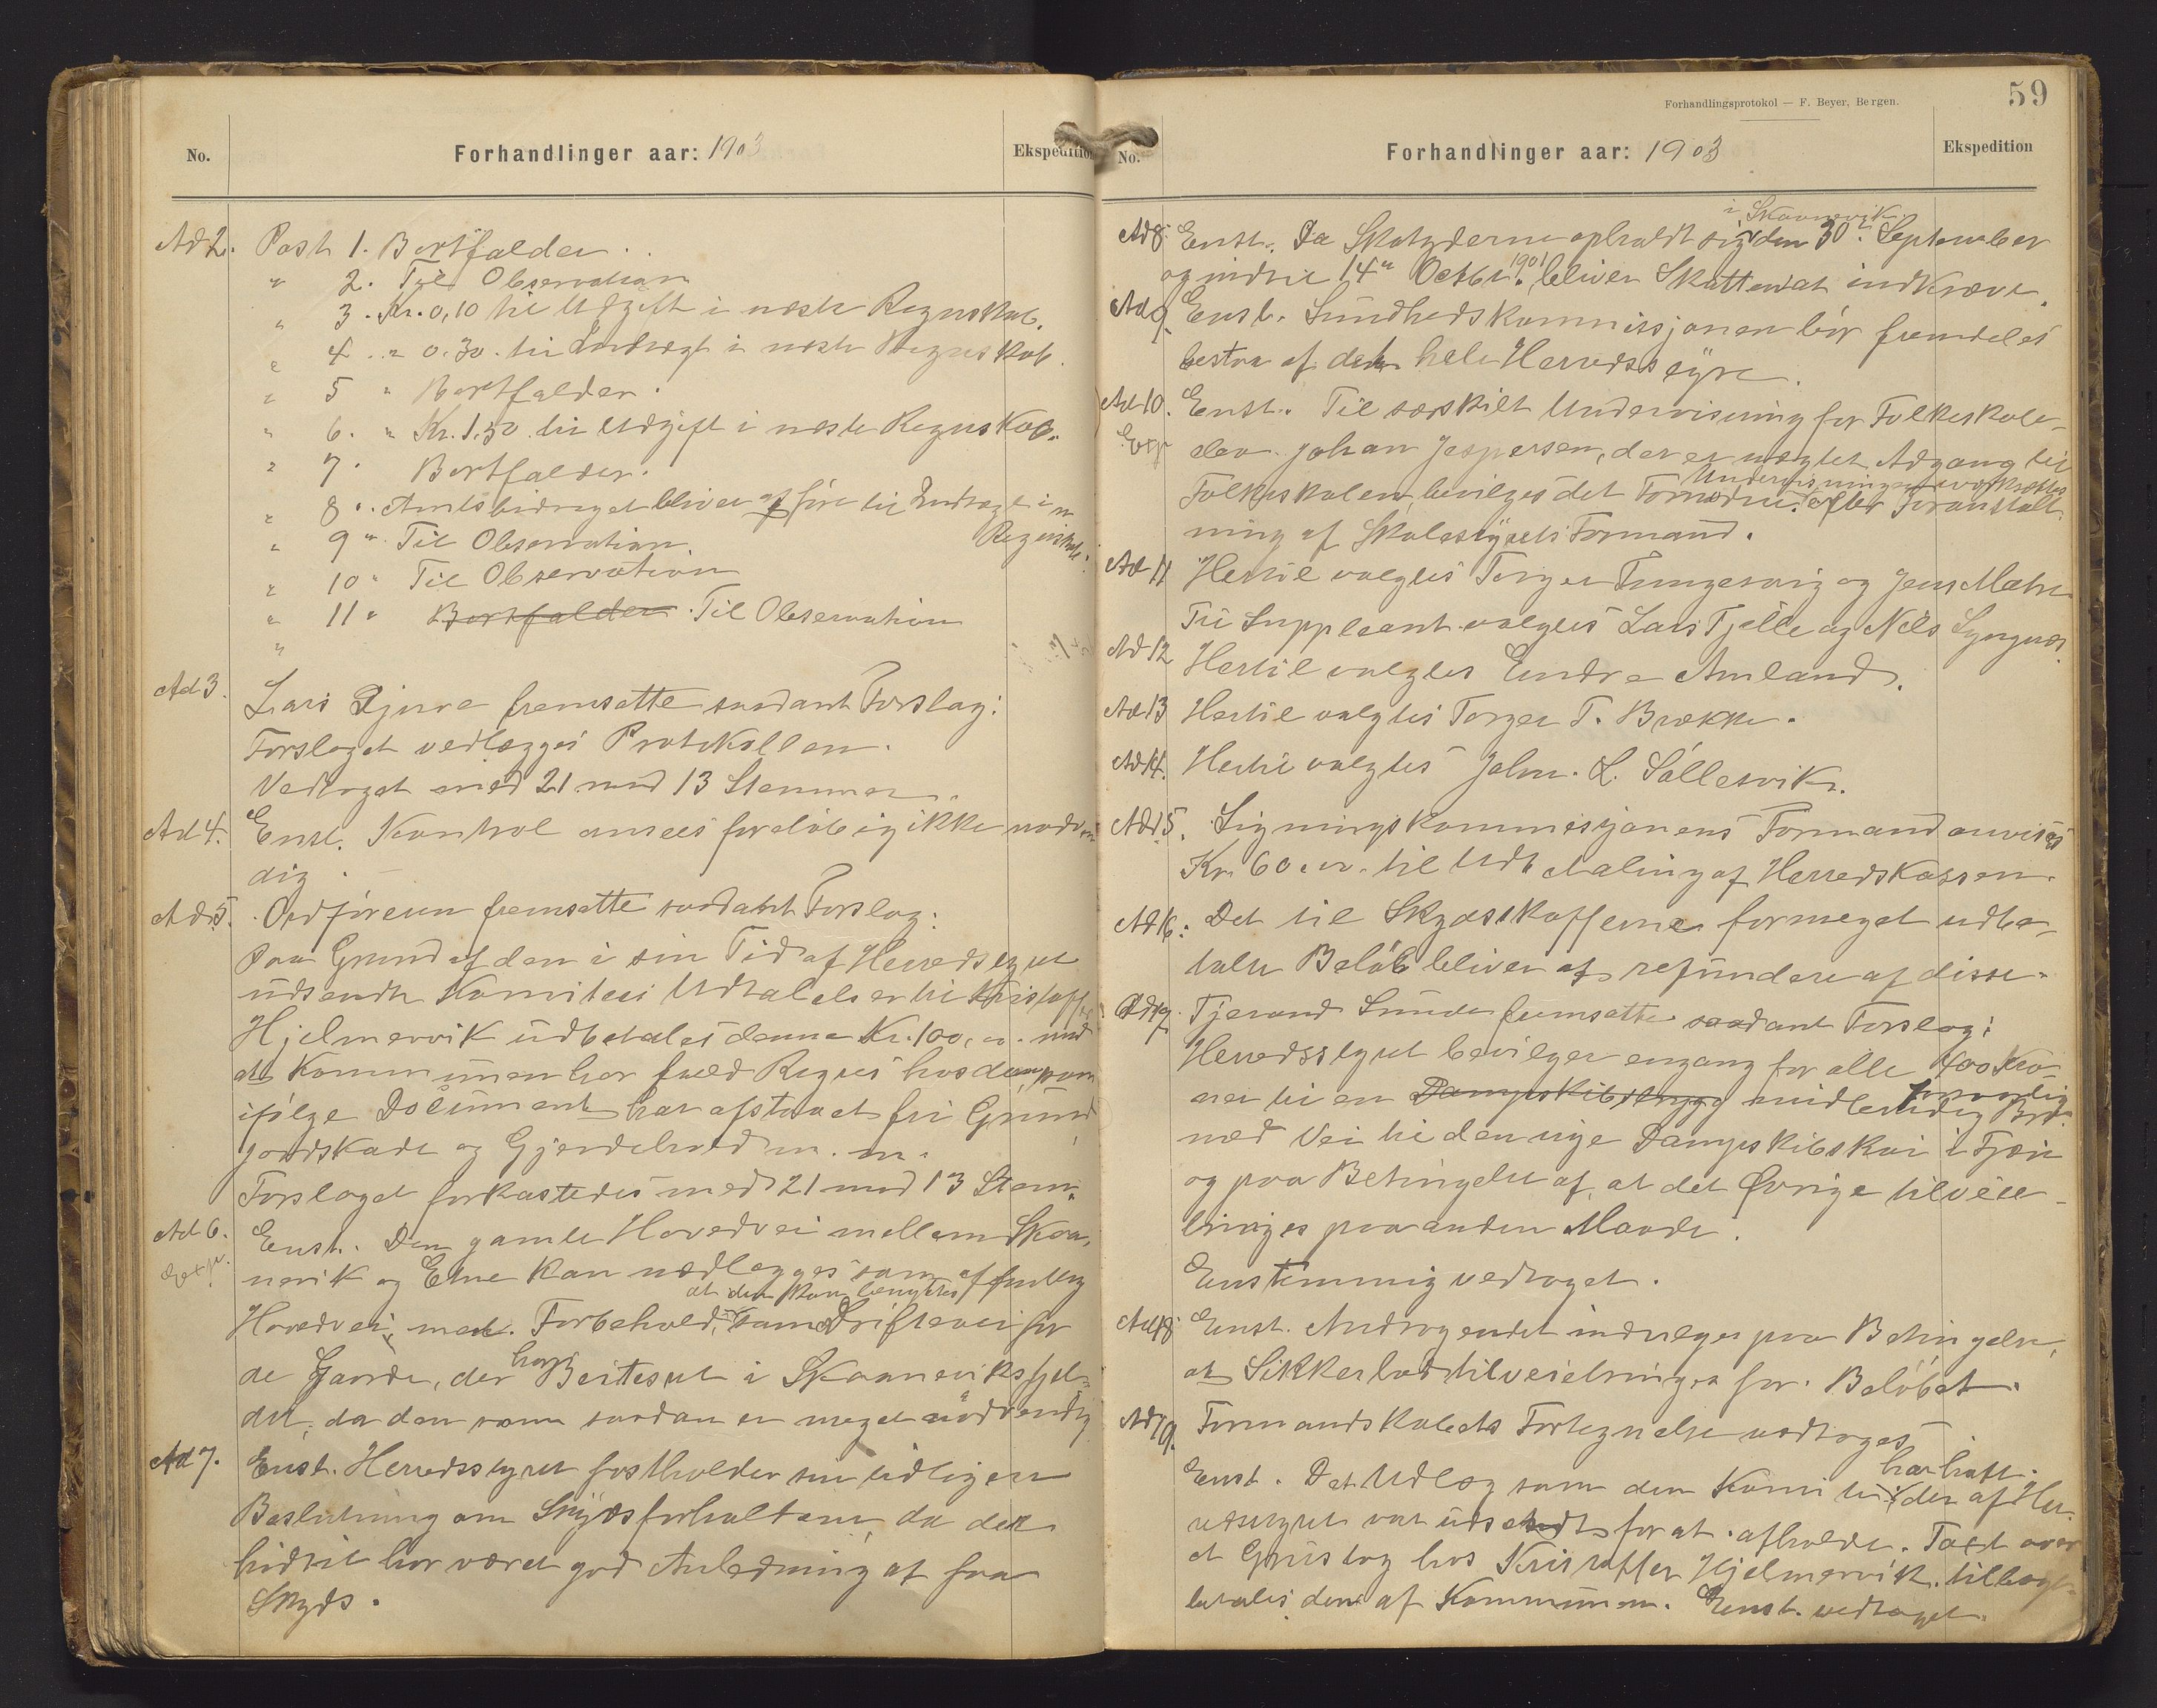 No.
Forhandlinger aar: 1903
Ekspedition
Ad 2.
Post 1. Bortfalder.
" 2. Til Observation
" 3. Kr. 0,10 til Udgift i neste Regnskab.
" 4. " 0.30. til Indtægt i neste Regnskab.
" 5 " Bortfalder.
" 6. " Kr. 1.50 til Udgift i neste Regnskab.
" 7. Bortfalder.
" 8". Amtsbidraget bliver at före til Indtægt i n
Regnskab.
" 9" Til Observation.
" 10" Til Observation
" 11" Bortfalder. Til Observation
"
Ad 3.
Lars Djuve fremsatte saadant Forslag:
Forslaget vedlægges Protokollen.
Vedtaget med 21 mod 13 Stemmer.
Ad 4.
Enst. Kontrol ansees foreløbig ikke nødven
dig.
Ad 5.
Ordföreren fremsatte saadant Forslag:
Paa Grund af den i sin Tid af Herredsstyret
udsendte Komitees Udtalelser til Kristoffer
Hjelmervik udbetales denne Kr. 100,00. mod
at Kommunen har fuld Regres hos dem, som
ifölge Document har afstaaet fri Grund
jordskade og Gjerdehold m. m.
Forslaget forkastedes med 21 mod 13 Stem.
Ad 6.
Exp.
Enst. Den gamle Hovedvei mellem Skaa-
nevik og Etne kan nedlægges som offentlig
at den kan benyttes
Hovedvei, med Forbehold, som Driftevei for
de Gaarde, der har Beitesret i Skaaneviksfjel-
det, da den som saadan er meget nödvendig
Ad 7.
Enst. Herredsstyret fastholder sin tidligere
Beslutning om Skydsforholdene, da der
hidtil har været god Anledning at faa
Skyds.
59
Forhandlingsprotokol — F. Beyer, Bergen.
No.
Forhandlinger aar: 1903
Ekspedition
i Skaanevik
Ad 8. Enst. Da Skatyderne opholdt sig den 30te September
og indtil 14de Octbr. 1901, bliver Skatten at indkræve.
Ad 9. Enst. Sundhedskommissjonen bör fremdeles
bestaa af det hele Herredsstyre.
Ad 10. Enst. Til særskilt Undervisning for Folkeskole-
Exp
elev Johan Jespersen, der er nægtet Adgang til
Undervisningen iværksættes
Folkeskolen, bevilges det Fornødne. efter Foranstalt-
ning af Skolestyrets Formand.
Ad 11 Hertil valgtes Torger Tungesvig og Jens Mæhle
Til Suppleant valgtes Lars Tjelle og Nils Lyngnæs.
Ad 12 Hertil valgtes Endre Amland.
Ad 13 Hertil valgtes Torger T. Brække.
Ad 14. Hertil valgtes John. L. Sállesvik.
Ad 15. Ligningskommissjonens Formand anvises
Kr. 60.00. til Udbetaling af Herredskassen.
Ad 16. Det til Skydsskafferne formeget udbe-
talte Belöb bliver at refundere af disse.
Ad 17. Tjerand Sunde fremsatte saadant Forslag:
Herredsstyret bevilger engang for alle 400 Kro-
forsvarlig
ner til en Dampskibsbrygg midlertidig Bro
med Vei til den nye Dampskibskai i
og paa Betingelse af, at det Øvrige tilveie-
bringes paa anden Maade.
Enstemmig vedtaget.
Ad 18 Enst. Andragendet indvilges paa Betingelse,
at Sikkerhed tilveiebringes for Belöbet.
Ad 19. Formandskabets Fortegnelse vedtoges
har haft.
Enst. Det Udlæg som den Komite, der af Her-
redsstyret var udsendt for at afholde Taxt over
et Grustag hos Kristoffer Hjelmervik. tilbage-
betales dem af Kommunen. Enst. vedtaget.